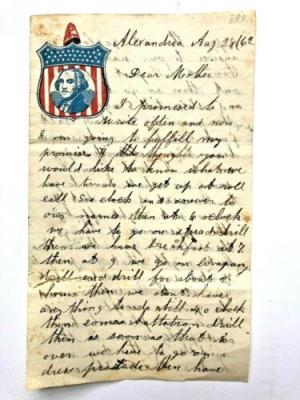 Alexandria Aug 28/62
Dear Mother
I promised to
write often and now
I am going to fulfill my
promise I thought you
would like to know what we
have to do we get up at roll
call Six clock and answer to
our names then at 6 oclock
we have to go on squad drill
then we have breakfast at 7
then at 9 we go on Company
drill and drill for about a
hour then we dont have
any thing to do till 4 o clock
then comes battalion drill
then as soon as that is
over we have to go on
dress parade then have